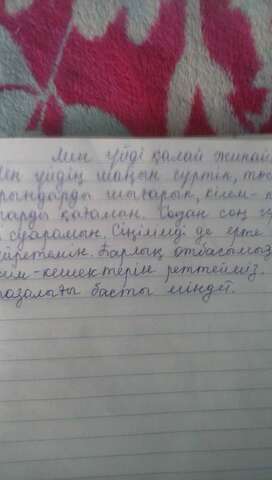 Мен үйді қалай жинай
үйдің шаңын сүртіп, тө
рындарды шығарып, кілем-
ларды қағамын. Содан соң гү
суарамын. Сіңлімді де ерте
йретемін. Барлық отбасымыз
ім-кешектерін реттейміз.
азалығы басты міндет.